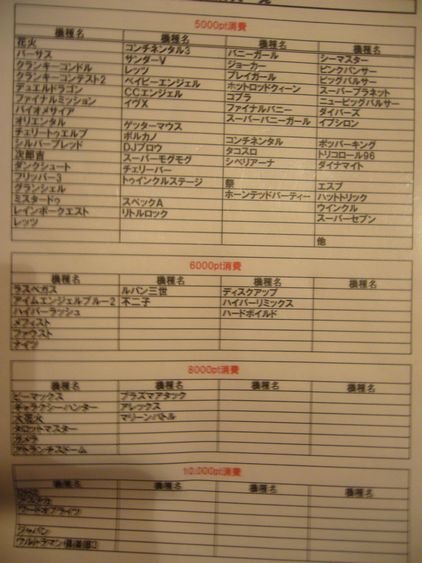 5000pt消費
機種名 機種名 機種名 機種名
花火 コンチネンタル3 バニーガール シーマスター
バーサス サンダーV ジョーカー ピンクパンサー
クランキーコンドル レッツ プレイガール ビッグパルサー
クランキーコンテスト2 ベイビーエンジェル ホットロッドクィーン スーパープラネット
デュエルドラゴン CCエンジェル コブラ ニュービッグパルサー
ファイナルミッション イヴX ファイナルバニー ダイバーズ
バイオメサイア スーパーバニーガール イプシロン
オリエンタル ゲッターマウス
チェリートゥエルブ ボルカノ コンチネンタル ポッパーキング
シルバーブレッド DJブロウ タコスロ トリコロール96
次郎吉 スーパーモグモグ シベリアーナ ダイナマイト
ダンクシュート チェリーバー
フリッパー3 トゥインクルステージ 祭 エスプ
グランシェル ホーンテッドパーティー ハットトリック
ミスタードゥ スペックA ウインクル
レインボークエスト リトルロック スーパーセブン
レッツ
他
6000pt消費
機種名 機種名 機種名 機種名
ラスベガス ルパン三世 ディスクアップ
アイムエンジェルブルー2 不二子 ハイパーリミックス
ハイパーラッシュ ハードボイルド
メフィスト
ファウスト
ナイツ
8000pt消費
機種名 機種名 機種名 機種名
ビーマックス プラズマアタック
ギャラクシーハンター アレックス
大花火 マリーンバトル
タロットマスター
ガメラ
アトランチスドーム
10,000pt消費
機種名 機種名 機種名 機種名
ワードオブライツ
ジャパン
ウルトラマン倶楽部3